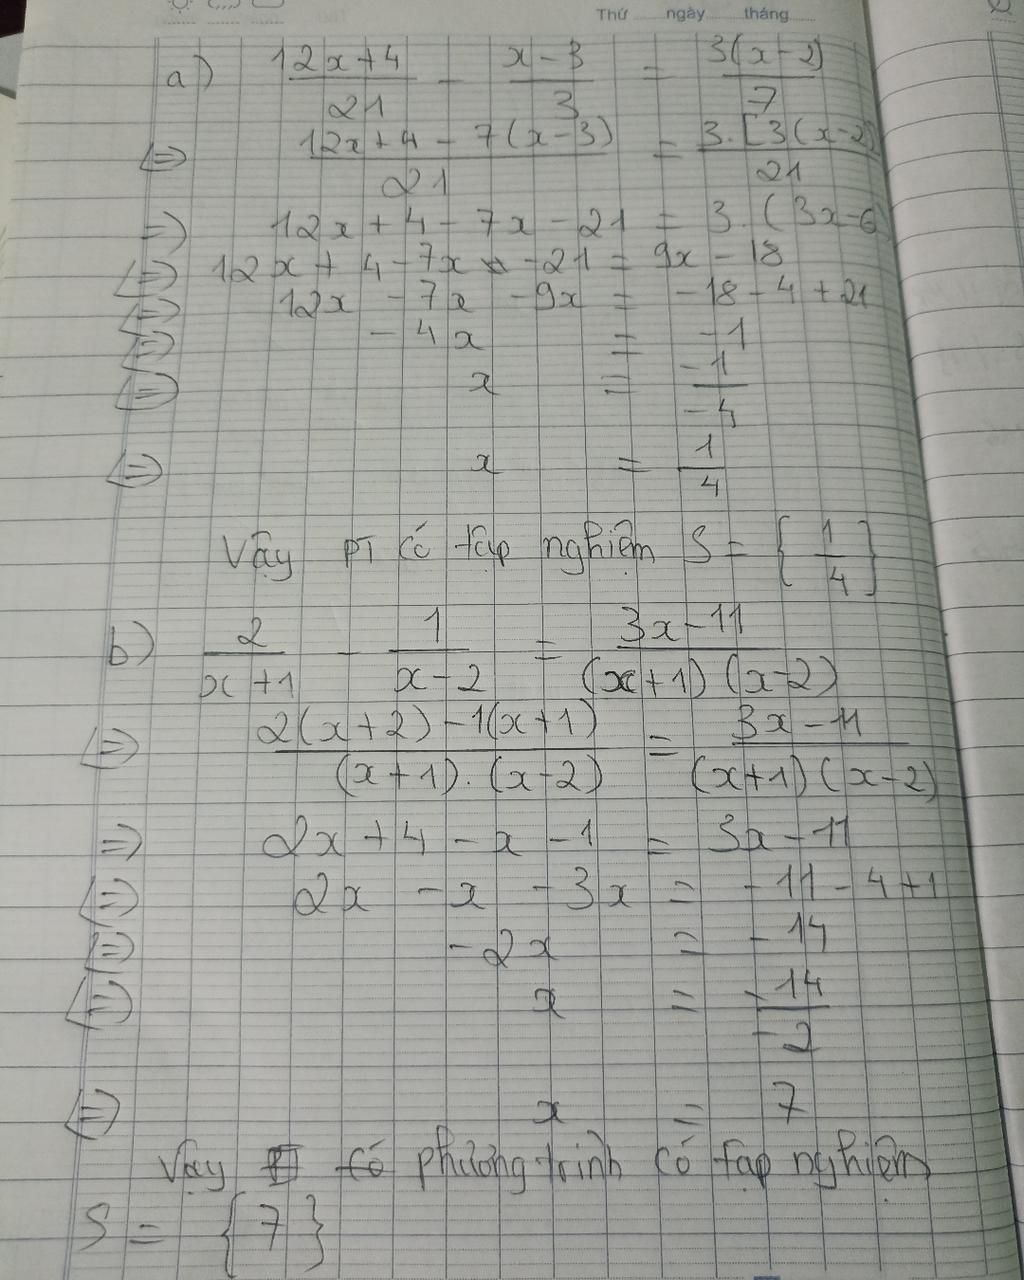 Thứ ngày tháng
a) (12x+4)/21 - (x-3)/3 = 3(x-2)/7
⇔ (12x+4-7(x-3))/21 = 3.[3(x-2)/21
⇒ 12x + 4 - 7x - 21 = 3.(3x-6
⇔ 12x + 4 - 7x - 21 = 9x - 18
⇔ 12x - 7x - 9x = -18 - 4 + 21
⇔ -4x = -1
⇔ x = -1/-4
⇔ x = 1/4
Vậy PT có tập nghiệm S = {1/4}
b) 2/(x+1) - 1/(x-2) = (3x-11)/((x+1)(x-2))
⇔ (2(x+2)-1(x+1))/((x+1).(x-2)) = (3x-11)/((x+1)(x-2))
⇒ 2x + 4 - x - 1 = 3x - 11
⇔ 2x - x - 3x = -11 - 4 + 1
⇔ -2x = -14
⇔ x = -14/-2
⇔ x = 7
Vay có phương trình có tập nghiệm
S = {7}